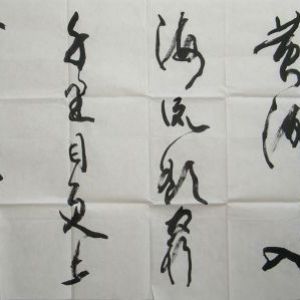 黄河入
海流欲窮
千里目更上